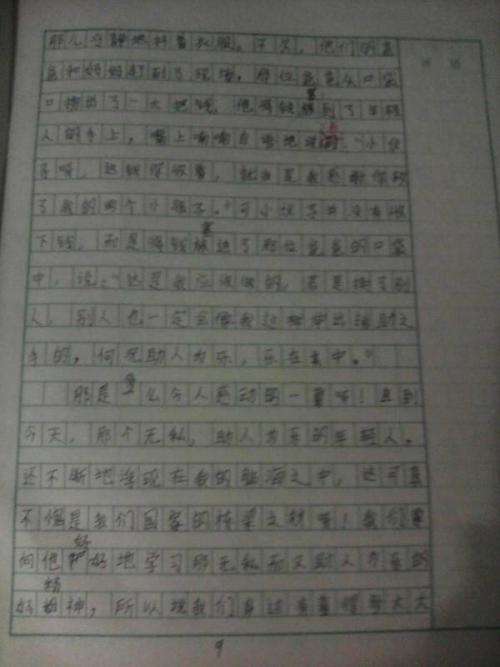 那儿冷静地抖着衣服。不久，他们的爸
爸和妈妈赶到了现场，那位爸爸从口袋
口掏出了一大把钱，他将钱塞到了年轻
人的手上，嘴上喃喃自语地说："小伙
子呀，这钱你收着，就当是我感谢你救
了我的两个小孩子。"可小伙子并没有收
下钱，而是将钱塞进了那位爸爸的口袋
中，说："这是我应该做的，若是换了别
人，别人也一定会像我这样伸出援助之
手的，何况助人为乐，乐在其中。"
那是多么令人感动的一幕呀！直到
今天，那个无私，助人为乐的年轻人。
还不断地浮现在我的脑海之中，这可真
不愧是我们国家的栋梁之材呀！我们要
向他好好地学习那无私而又助人为乐的
好精神，所以现我们身边有着很多大大
9